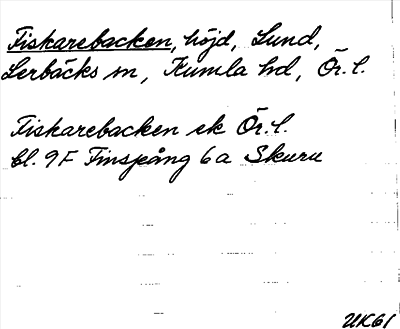 Fiskarebacken, höjd, Lund,
Lerbäcks sn, Kumla hd, Ör. l.
Fiskarebacken ek Ör. l.
bl. 9F Finspång 6a Skuru
UK61